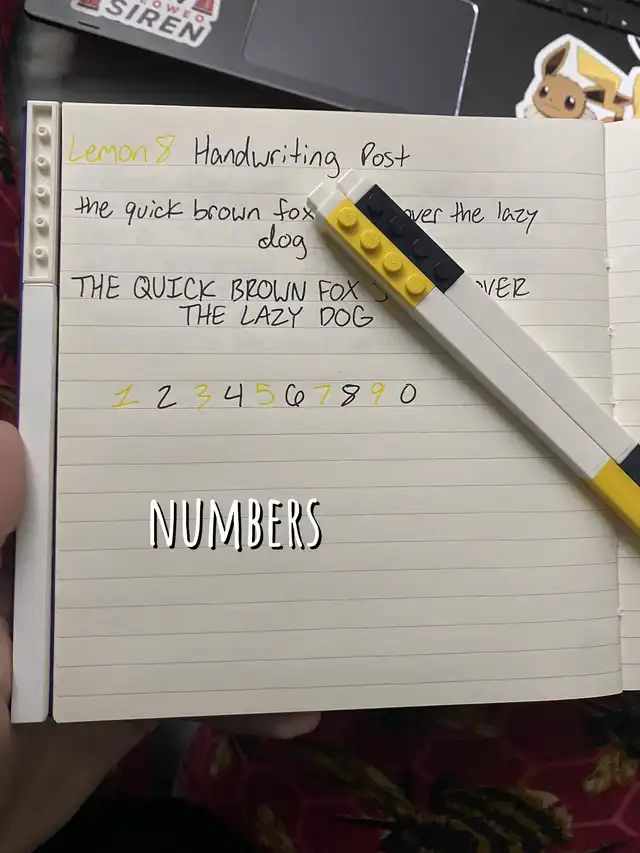 SIREN
Lemon 8 Handwriting Post
the quick brown fox over the lazy
dog
THE QUICK BROWN FOX OVER
THE LAZY DOG
1 2 3 4 5 6 7 8 9 0
NUMBERS